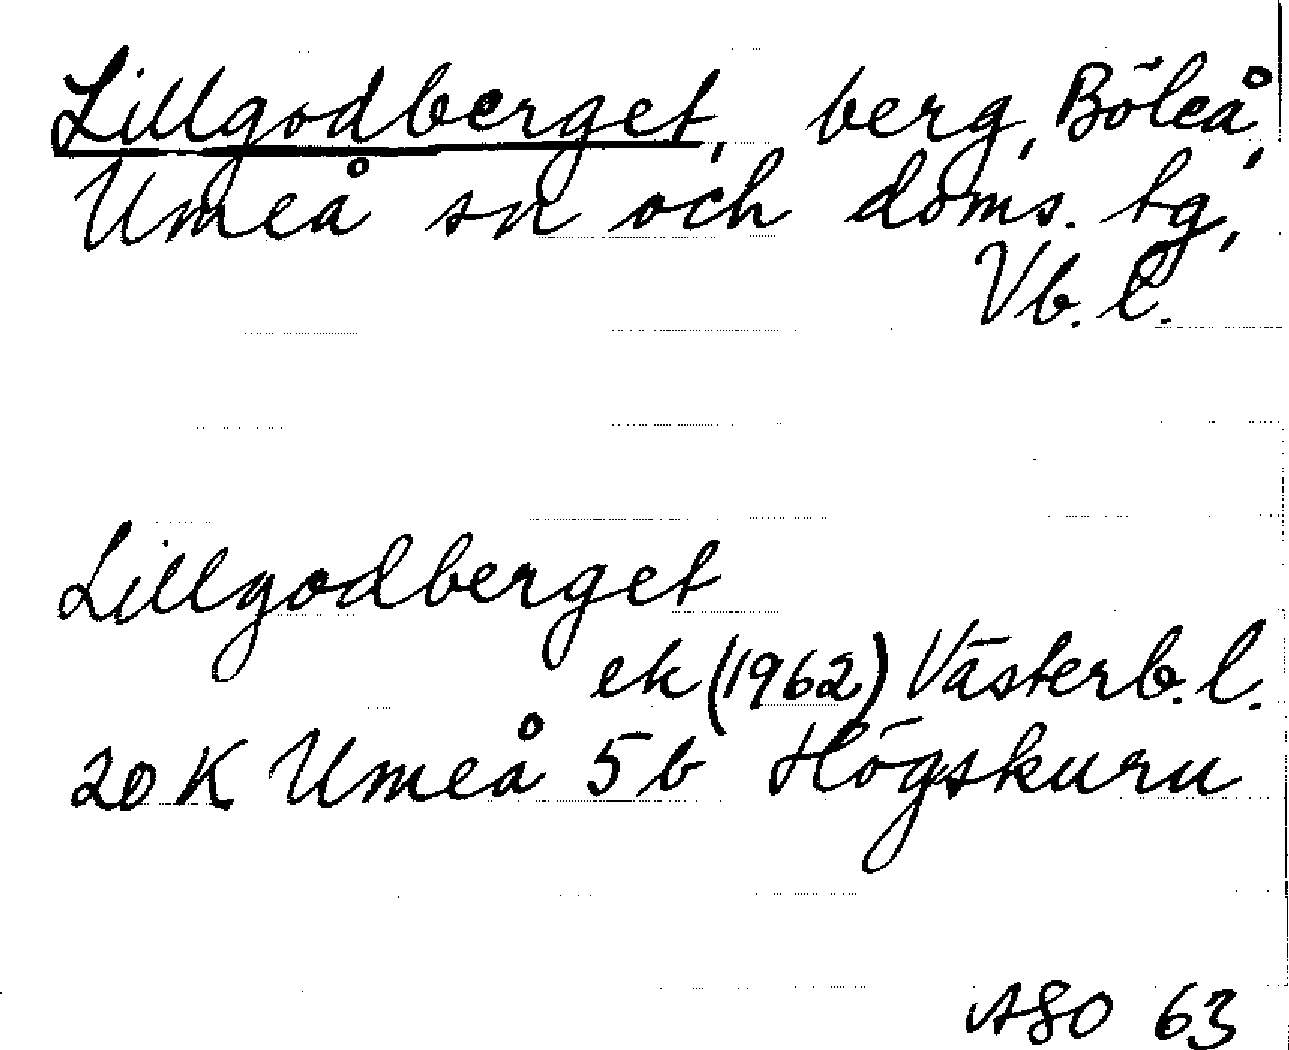 Lillgodberget, berg, Böleå,
Umeå sn och doms. tg,
Vb. l.
Lillgodberget
ek (1962) Västerb. l.
20 K Umeå 5 b Högskuru
ASO 63